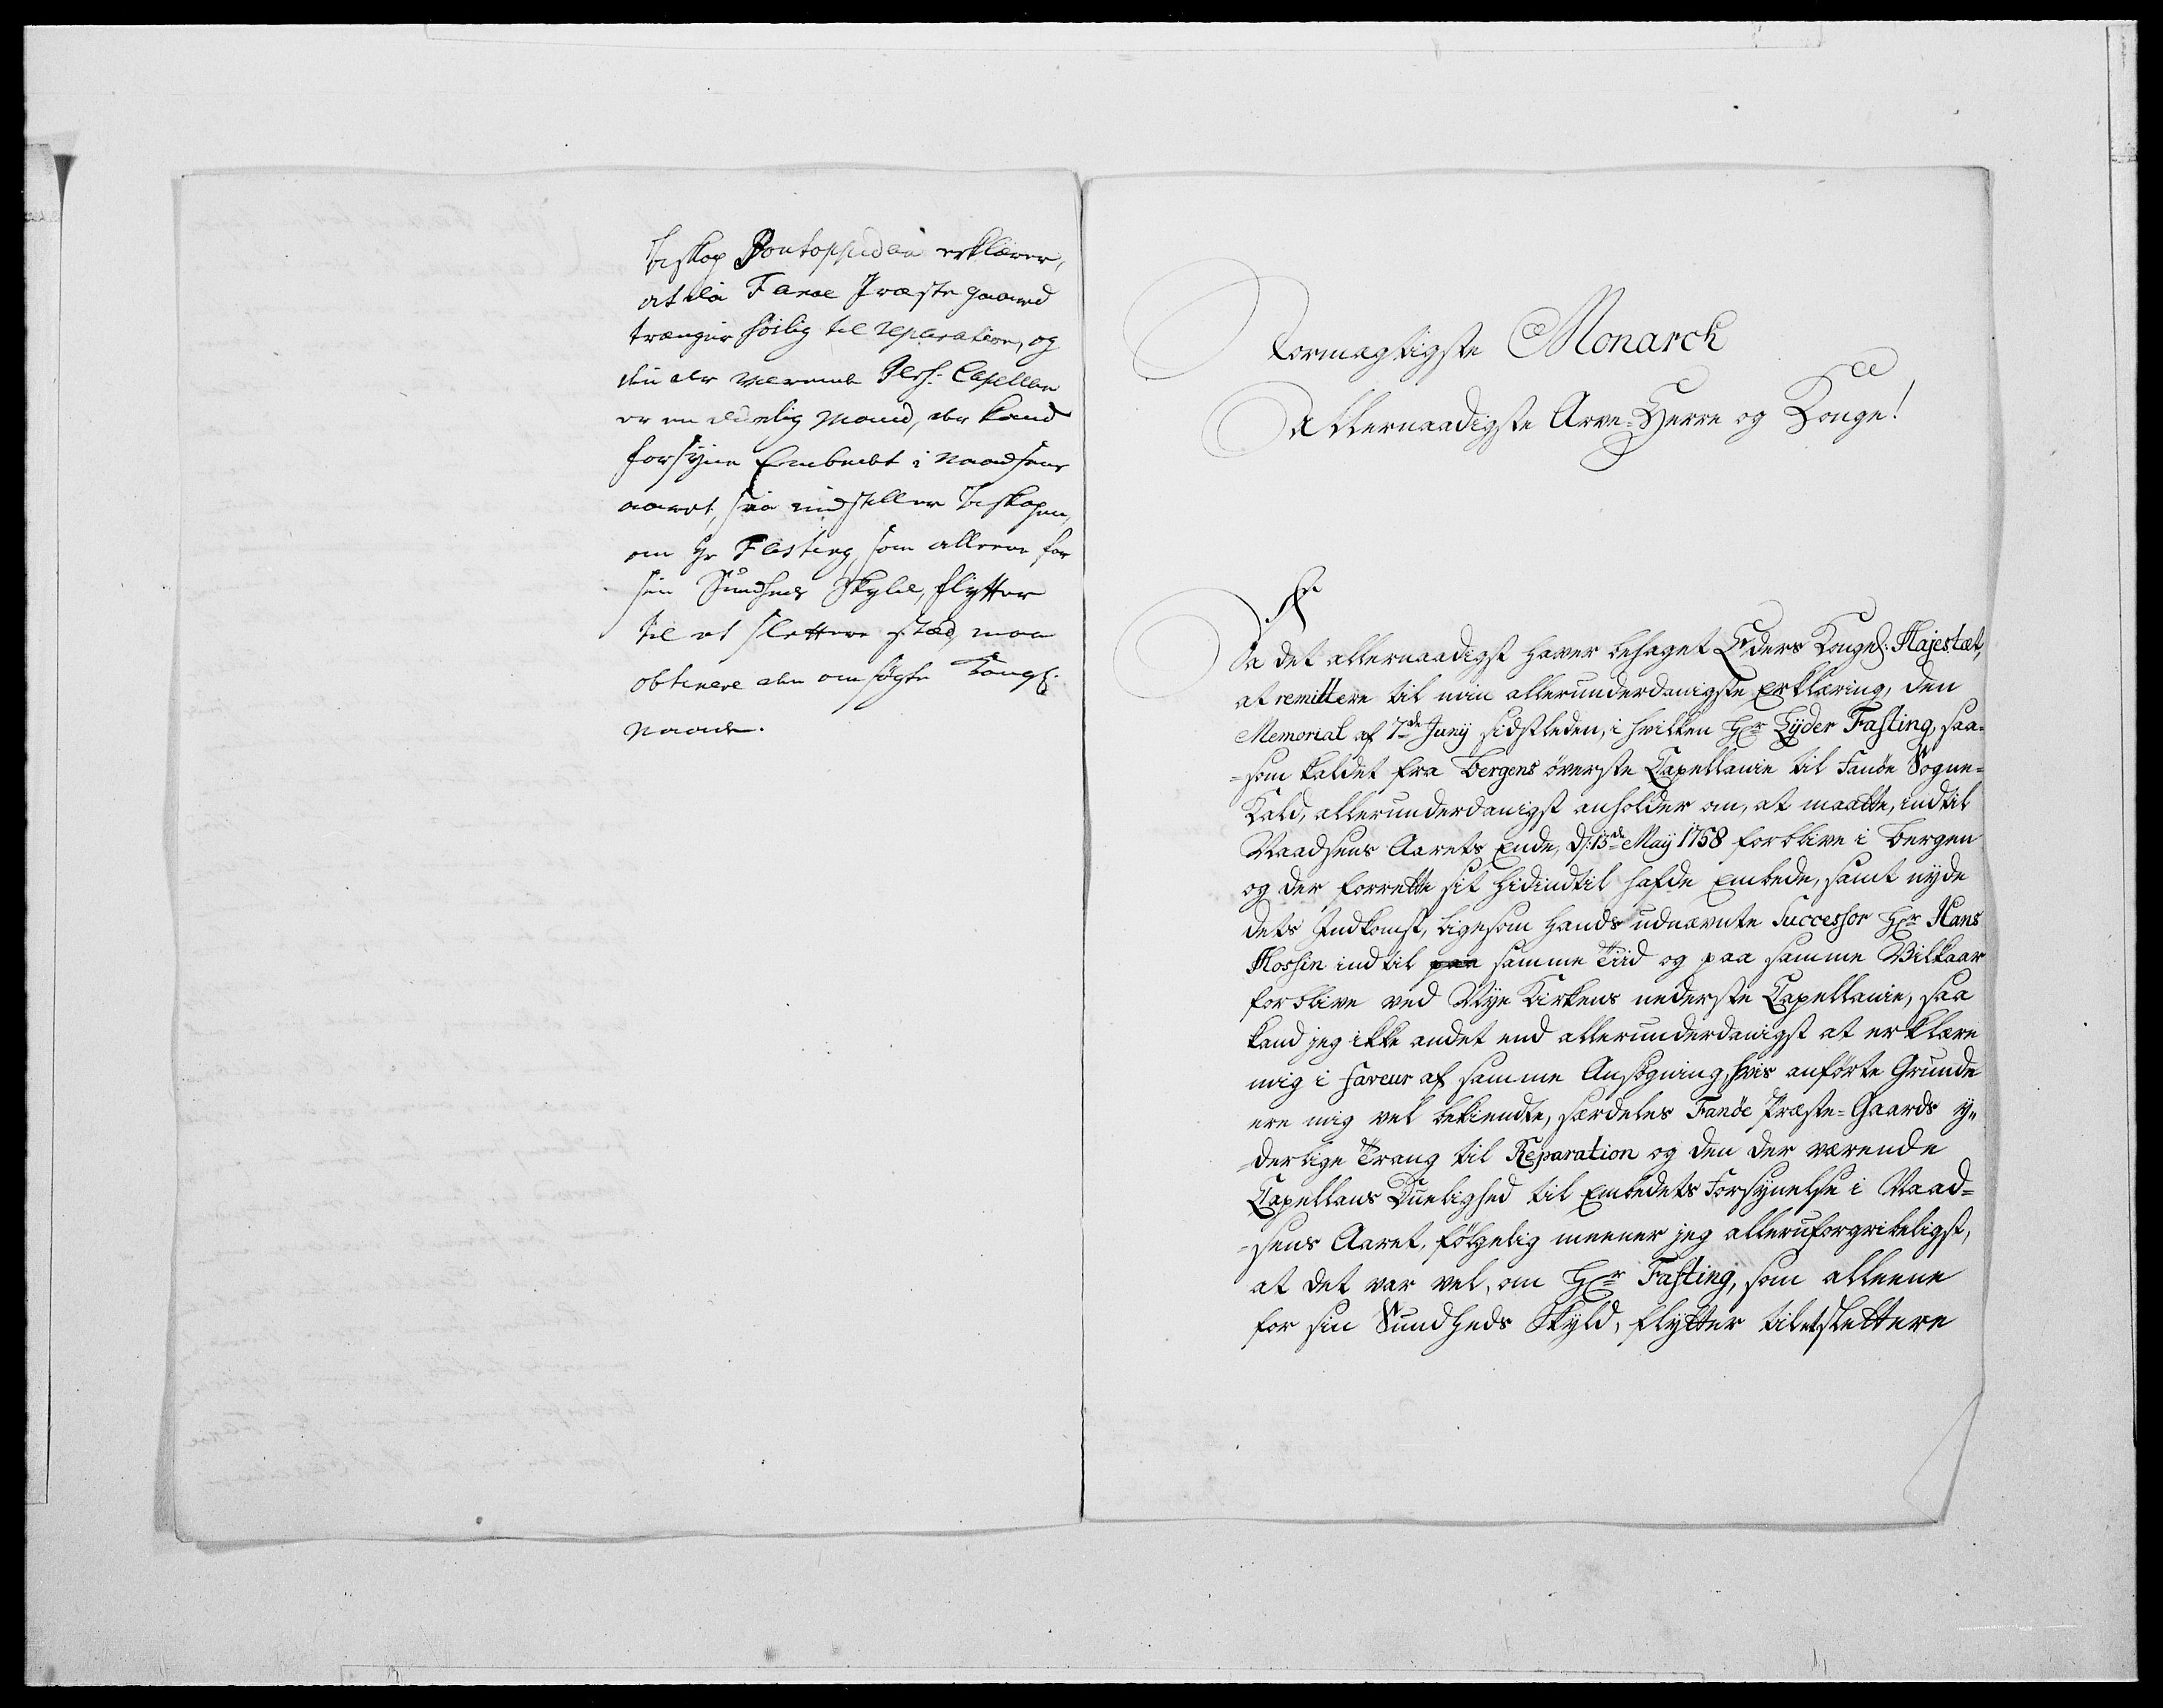 Biskop Pontoppidan erklærer,
at da Fanøe Præstegaard
trænger høilig til reparation, og
den der værende Pers: Capellan
er en duelig Mand, der kand
forsÿne Embedet i Naadsens
aaret, saa indstiller Biskopen,
om Hr Fasting, som alleene for
sin Sundheds Skyld, flytter
til et slettere stæd, maa
obtinere den omsøgte Kongl:
Naade.
Stormægtigste Monarch
Allernaadigste Arve-Herre og Konge!
Da det allernaadigst haver behaget Eders Kongel: Majestæt,
at remittere til min allerunderdanigste Erklæring, den
Memorial af 7de Junÿ sidstleden, i hvilken Hr Lÿder Fasting, saa-
-som kaldet fra Bergens øverste Capellanie til Fanöe Sogne-
Kald, allerunderdanigst anholder om, at maatte, indtil
Naadsens Aarets Ende, d: 13de Maÿ 1758 forblive i Bergen
og der forrette sit hidindtil hafde Embede, samt nÿde
dets Indkomst, ligesom hands udnævnte Successor Hr Hans
Mossin indtil paa samme Tiid og paa samme Vilkaar
forblive ved Nÿe Kirkens nederste Capellanie, saa
kand jeg ikke andet end allerunderdanigst at erklære
mig i faveur af samme Ansøgning, hvis anförte Grunde
ere mig vel bekiendte, særdeles Fanöe Præste-Gaards ÿ-
-derlige Trang til Reparation og den der værende
Capellans Duelighed til Embedets Forsÿnelse i Naad-
-sens Aaret, fölgelig meener jeg alleruforgribeligst,
at det var vel, om Hr Fasting, som alleene
for sin Sundheds Skyld, flÿtter til et slettere